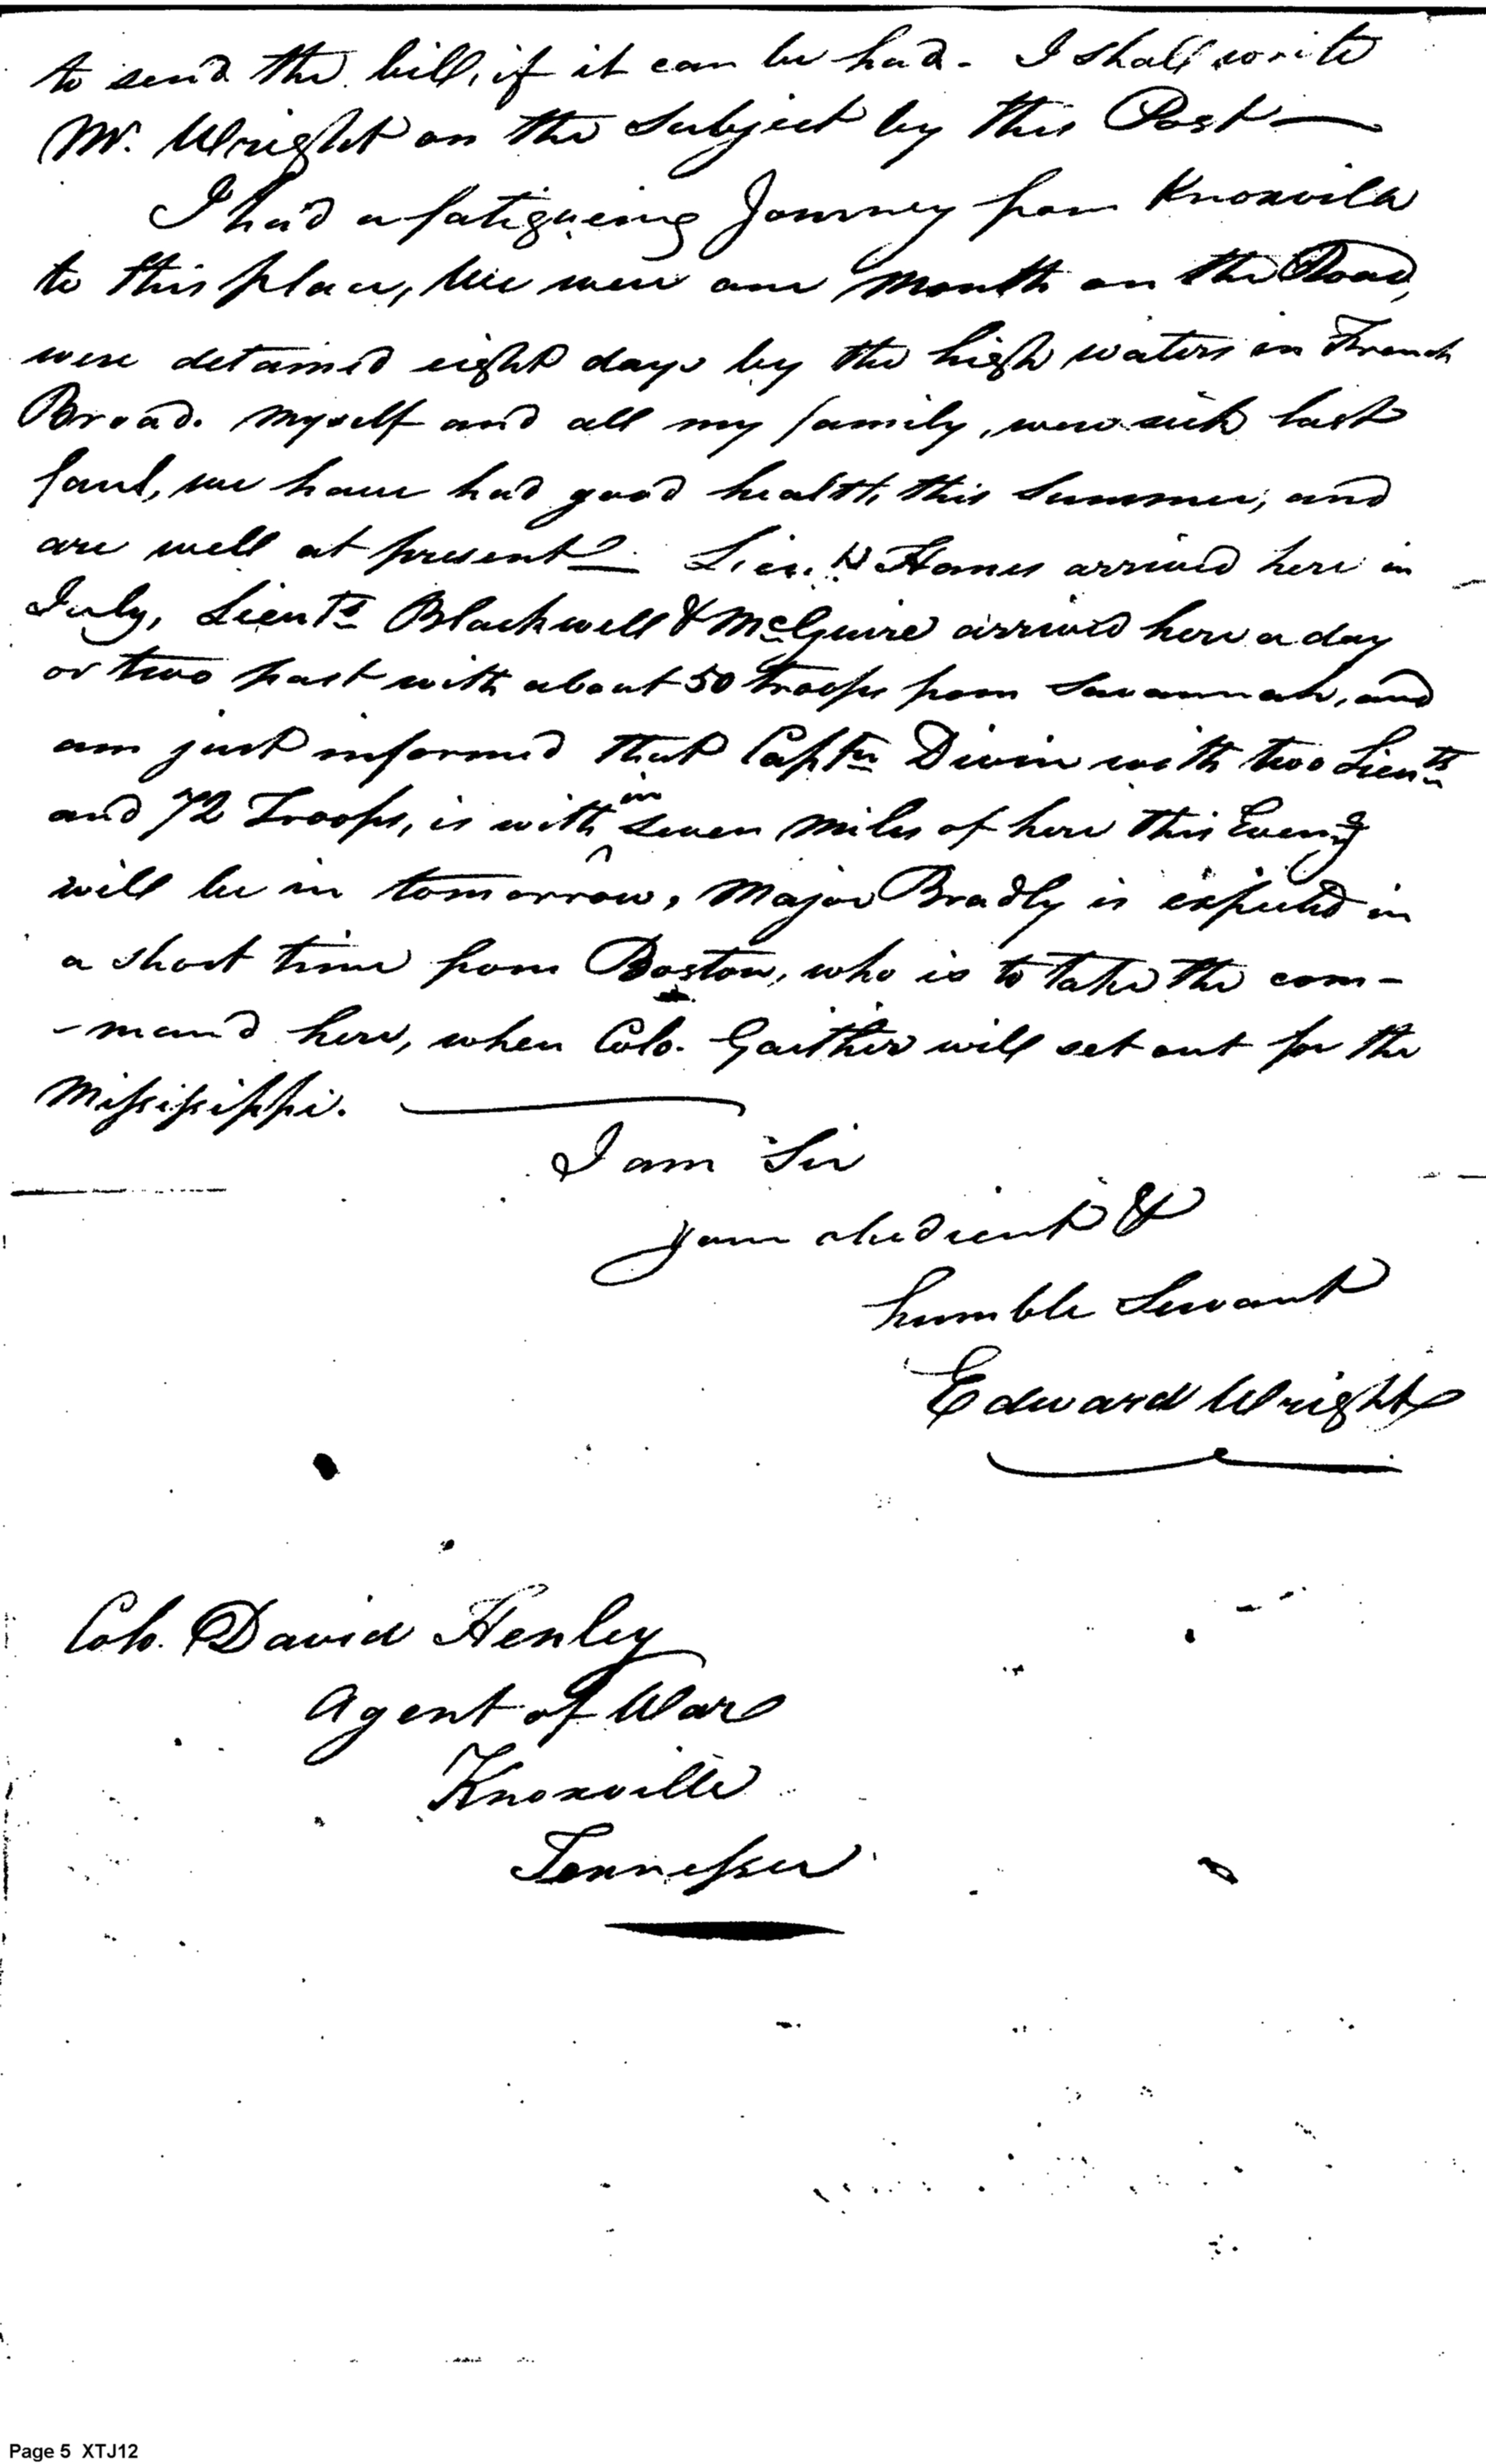 to send the bill, if it can be had - I shall write
Mr. Wright on the Subject by this Post —
I had a fatigueing Journey from Knoxville
to this place, We were one Month on the Road,
were detained eight days by the high waters in French
Broad. Myself and all my family, were sick last
faul, we have had good health this Summer, and
are well at present — Lieut. Homes arrived here in
July, Lieuts Blackwell & McGuire arrived here a day
or two past with about 50 troops from Savannah, and
am just informed that Captn Divin with two Lieuts
and 72 Troops, is within seven Miles of here this Eveng
will be in tomorrow, Major Bradly is expected in
a short time from Boston, who is to take the com-
-mand here, when Colo. Gaither will set out for the
Mississippi. —
I am Sir
your obedient &
humble Servant
Edward Wright
Colo. David Henley
Agent of War
Knoxville
Tennessee
Page 5 XTJ12